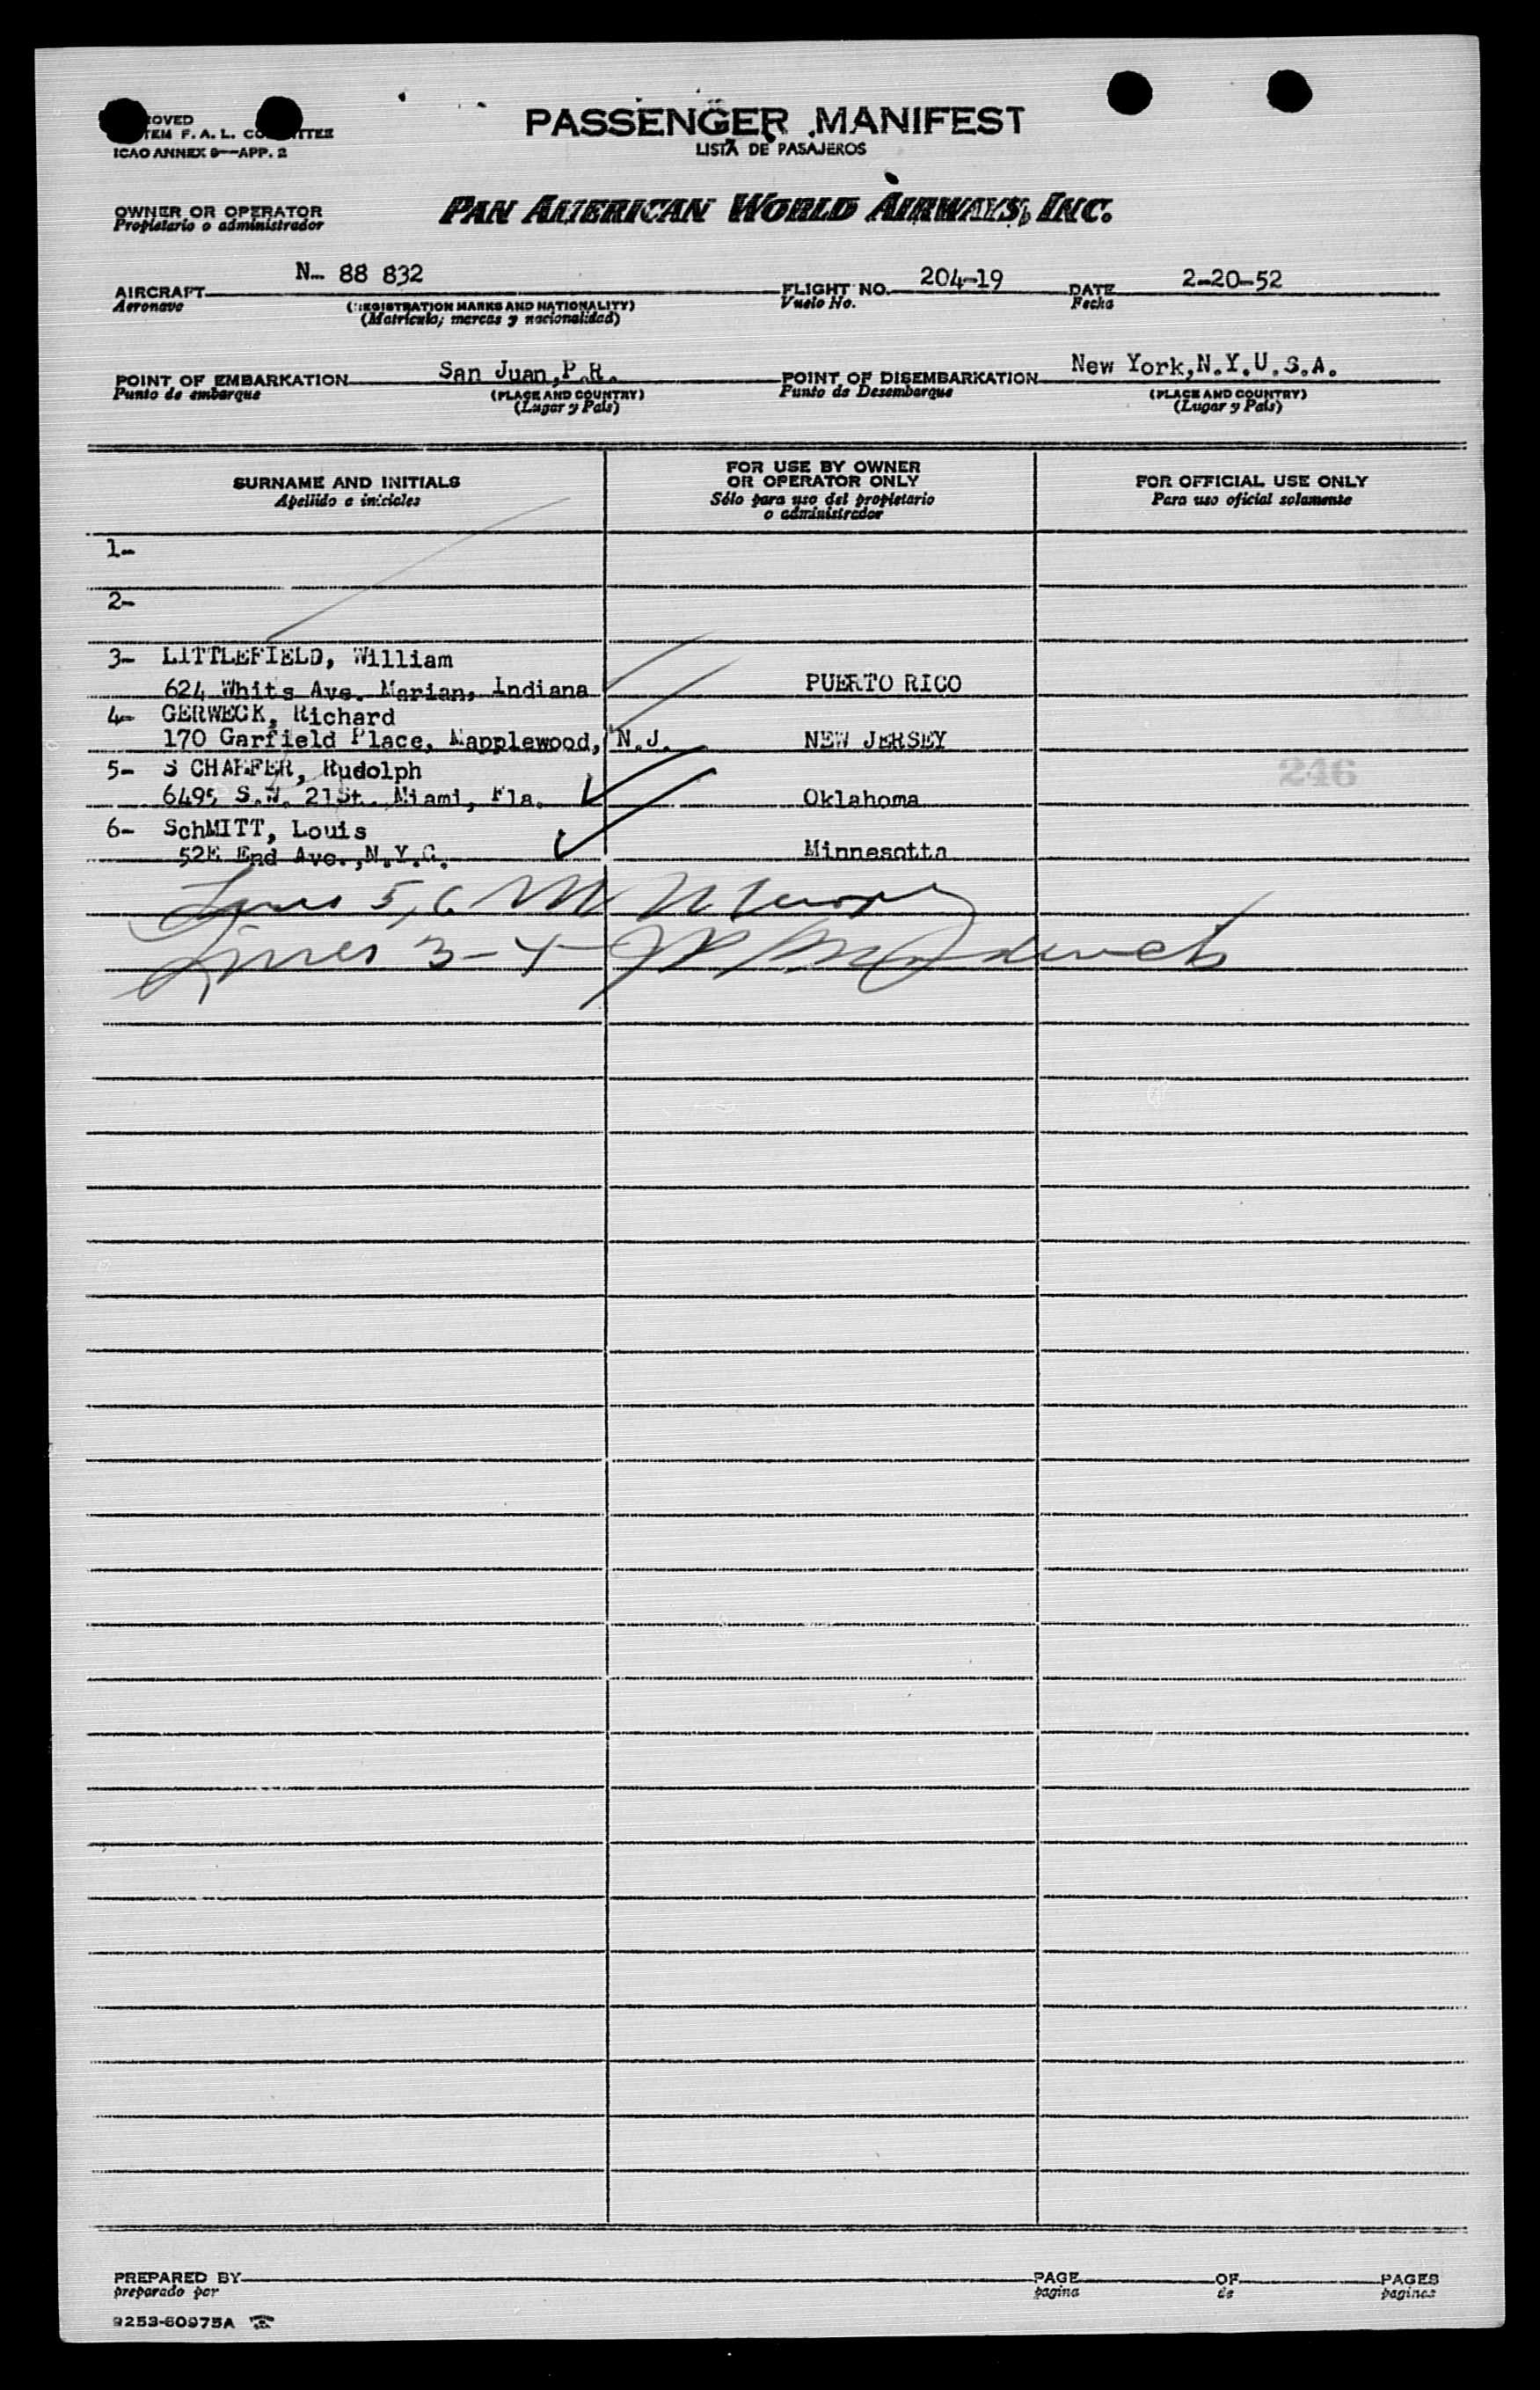 PASSENGER MANIFEST
LISTA DE PASAJEROS
F. A. L.
ICAO ANNEX 9—APP. 2
OWNER OR OPERATOR
Propietario o administrador
PAN AMERICAN WORLD AIRWAYS, INC.
AIRCRAFT N- 88 832 FLIGHT NO. 204-19 DATE 2-20-52
Aeronave (REGISTRATION MARKS AND NATIONALITY) Vuelo No. Fecha
(Matrícula; marcas y nacionalidad)
POINT OF EMBARKATION San Juan,P.R. POINT OF DISEMBARKATION New York,N.Y.U.S.A.
Punto de embarque (PLACE AND COUNTRY) Punto de Desembarque (PLACE AND COUNTRY)
(Lugar y País) (Lugar y País)
SURNAME AND INITIALS FOR USE BY OWNER OR OPERATOR ONLY FOR OFFICIAL USE ONLY
Apellido e iniciales Sólo para uso del propietario o administrador Para uso oficial solamente
1-
2-
3- LITTLEFIELD, William
624 Whits Ave. Marian, Indiana PUERTO RICO
4- GERWECK, Richard
170 Garfield Place, Mapplewood, N.J. NEW JERSEY
5- S CHAFFER, Rudolph
246
6495 S.W. 21St. Miami, Fla. Oklahoma
6- SchMITT, Louis
52E End Ave.,N.Y.C. Minnesotta
Lines 5,6
Lines 3-4
PREPARED BY PAGE OF PAGES
preparado por pagina de paginas
9253-60975A